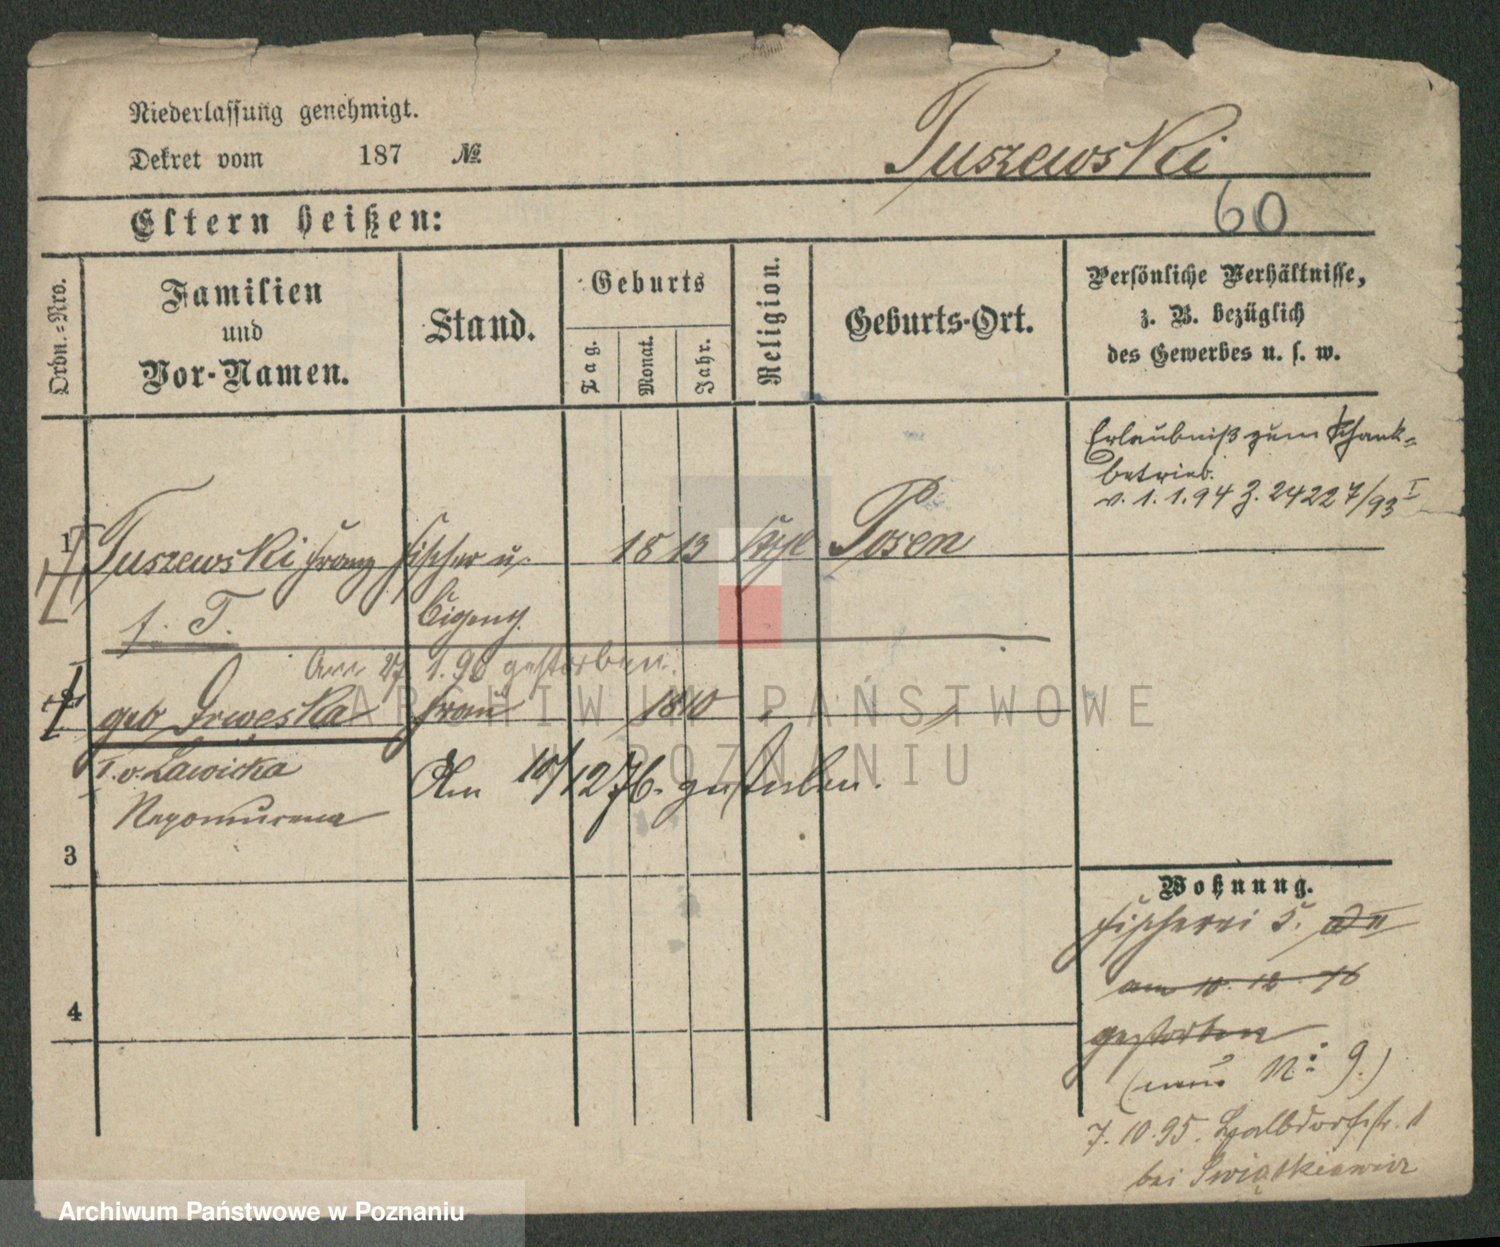 Niederlassung genehmigt.
Dekret vom 187 №
Tuszewski
60
Eltern heißen:
Ordn.=Nro.
Familien
und
Vor-Namen.
Stand.
Geburts
Tag.
Monat.
Jahr.
Religion.
Geburts-Ort.
Persönliche Verhältnisse,
z. B. bezüglich
des Gewerbes u. s. w.
Erlaubniß zum Schank=
betrieb.
v. 1.1.94 J. 24227/93 I
1 Tuszewski Franz Fischer u. 1813 kath Posen
f. T. Eigent.
Am 27 1.96 gestorben.
geb Frau 1810
T. v. Lawicka Am 10/12 76. gestorben.
Nepomucena
3
4
Wohnung.
Fischerei 5.
am 10. 12. 76
gestorben
(neue N: 9.)
7.10.95. Halbdorfstr. 1
bei Swiątkiewicz
ARCHIWUM PAŃSTWOWE
W POZNANIU
Archiwum Państwowe w Poznaniu